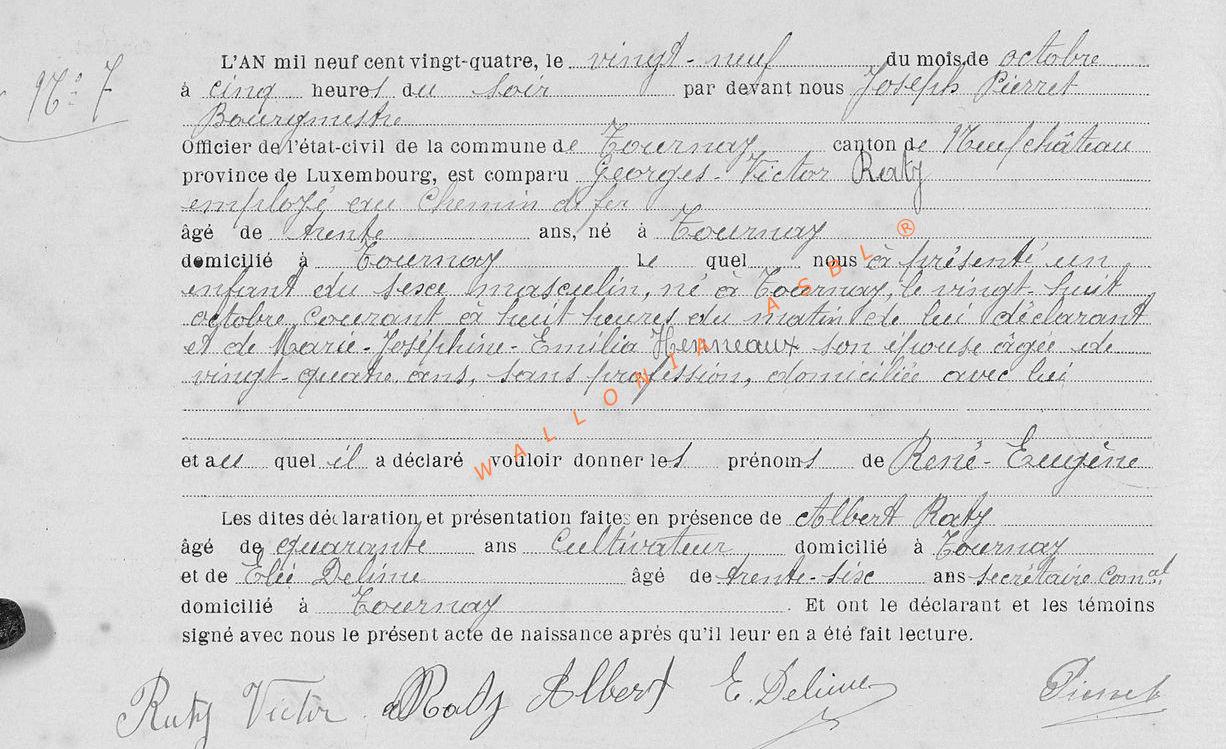 N° 7
L'AN mil neuf cent vingt-quatre, le vingt-neuf du mois de octobre
à cinq heures du soir par devant nous Joseph Pierret
Bourgmestre
Officier de l'état-civil de la commune de Tournay canton de Neufchâteau
province de Luxembourg, est comparu Georges-Victor Raty
employé au Chemin de fer
âgé de trente ans, né à Tournay
domicilié à Tournay le quel nous à présenté un
enfant du sexe masculin, né à Tournay, le vingt-huit
octobre, courant à huit heures du matin de lui déclarant
et de Marie-Joséphine-Emilia Henneaux son épouse âgée de
vingt-quatre ans, sans profession, domiciliée avec lui
et au quel il a déclaré vouloir donner les prénoms de René-Eugène
Les dites déclaration et présentation faites en présence de Albert Raty
âgé de quarante ans Cultivateur domicilié à Tournay
et de Elie Delime âgé de trente-six ans secrétaire comal
domicilié à Tournay. Et ont le déclarant et les témoins
signé avec nous le présent acte de naissance après qu'il leur en a été fait lecture.
Raty Victor Raty Albert E. Delime Pierret
WALLONIA ASBL ®